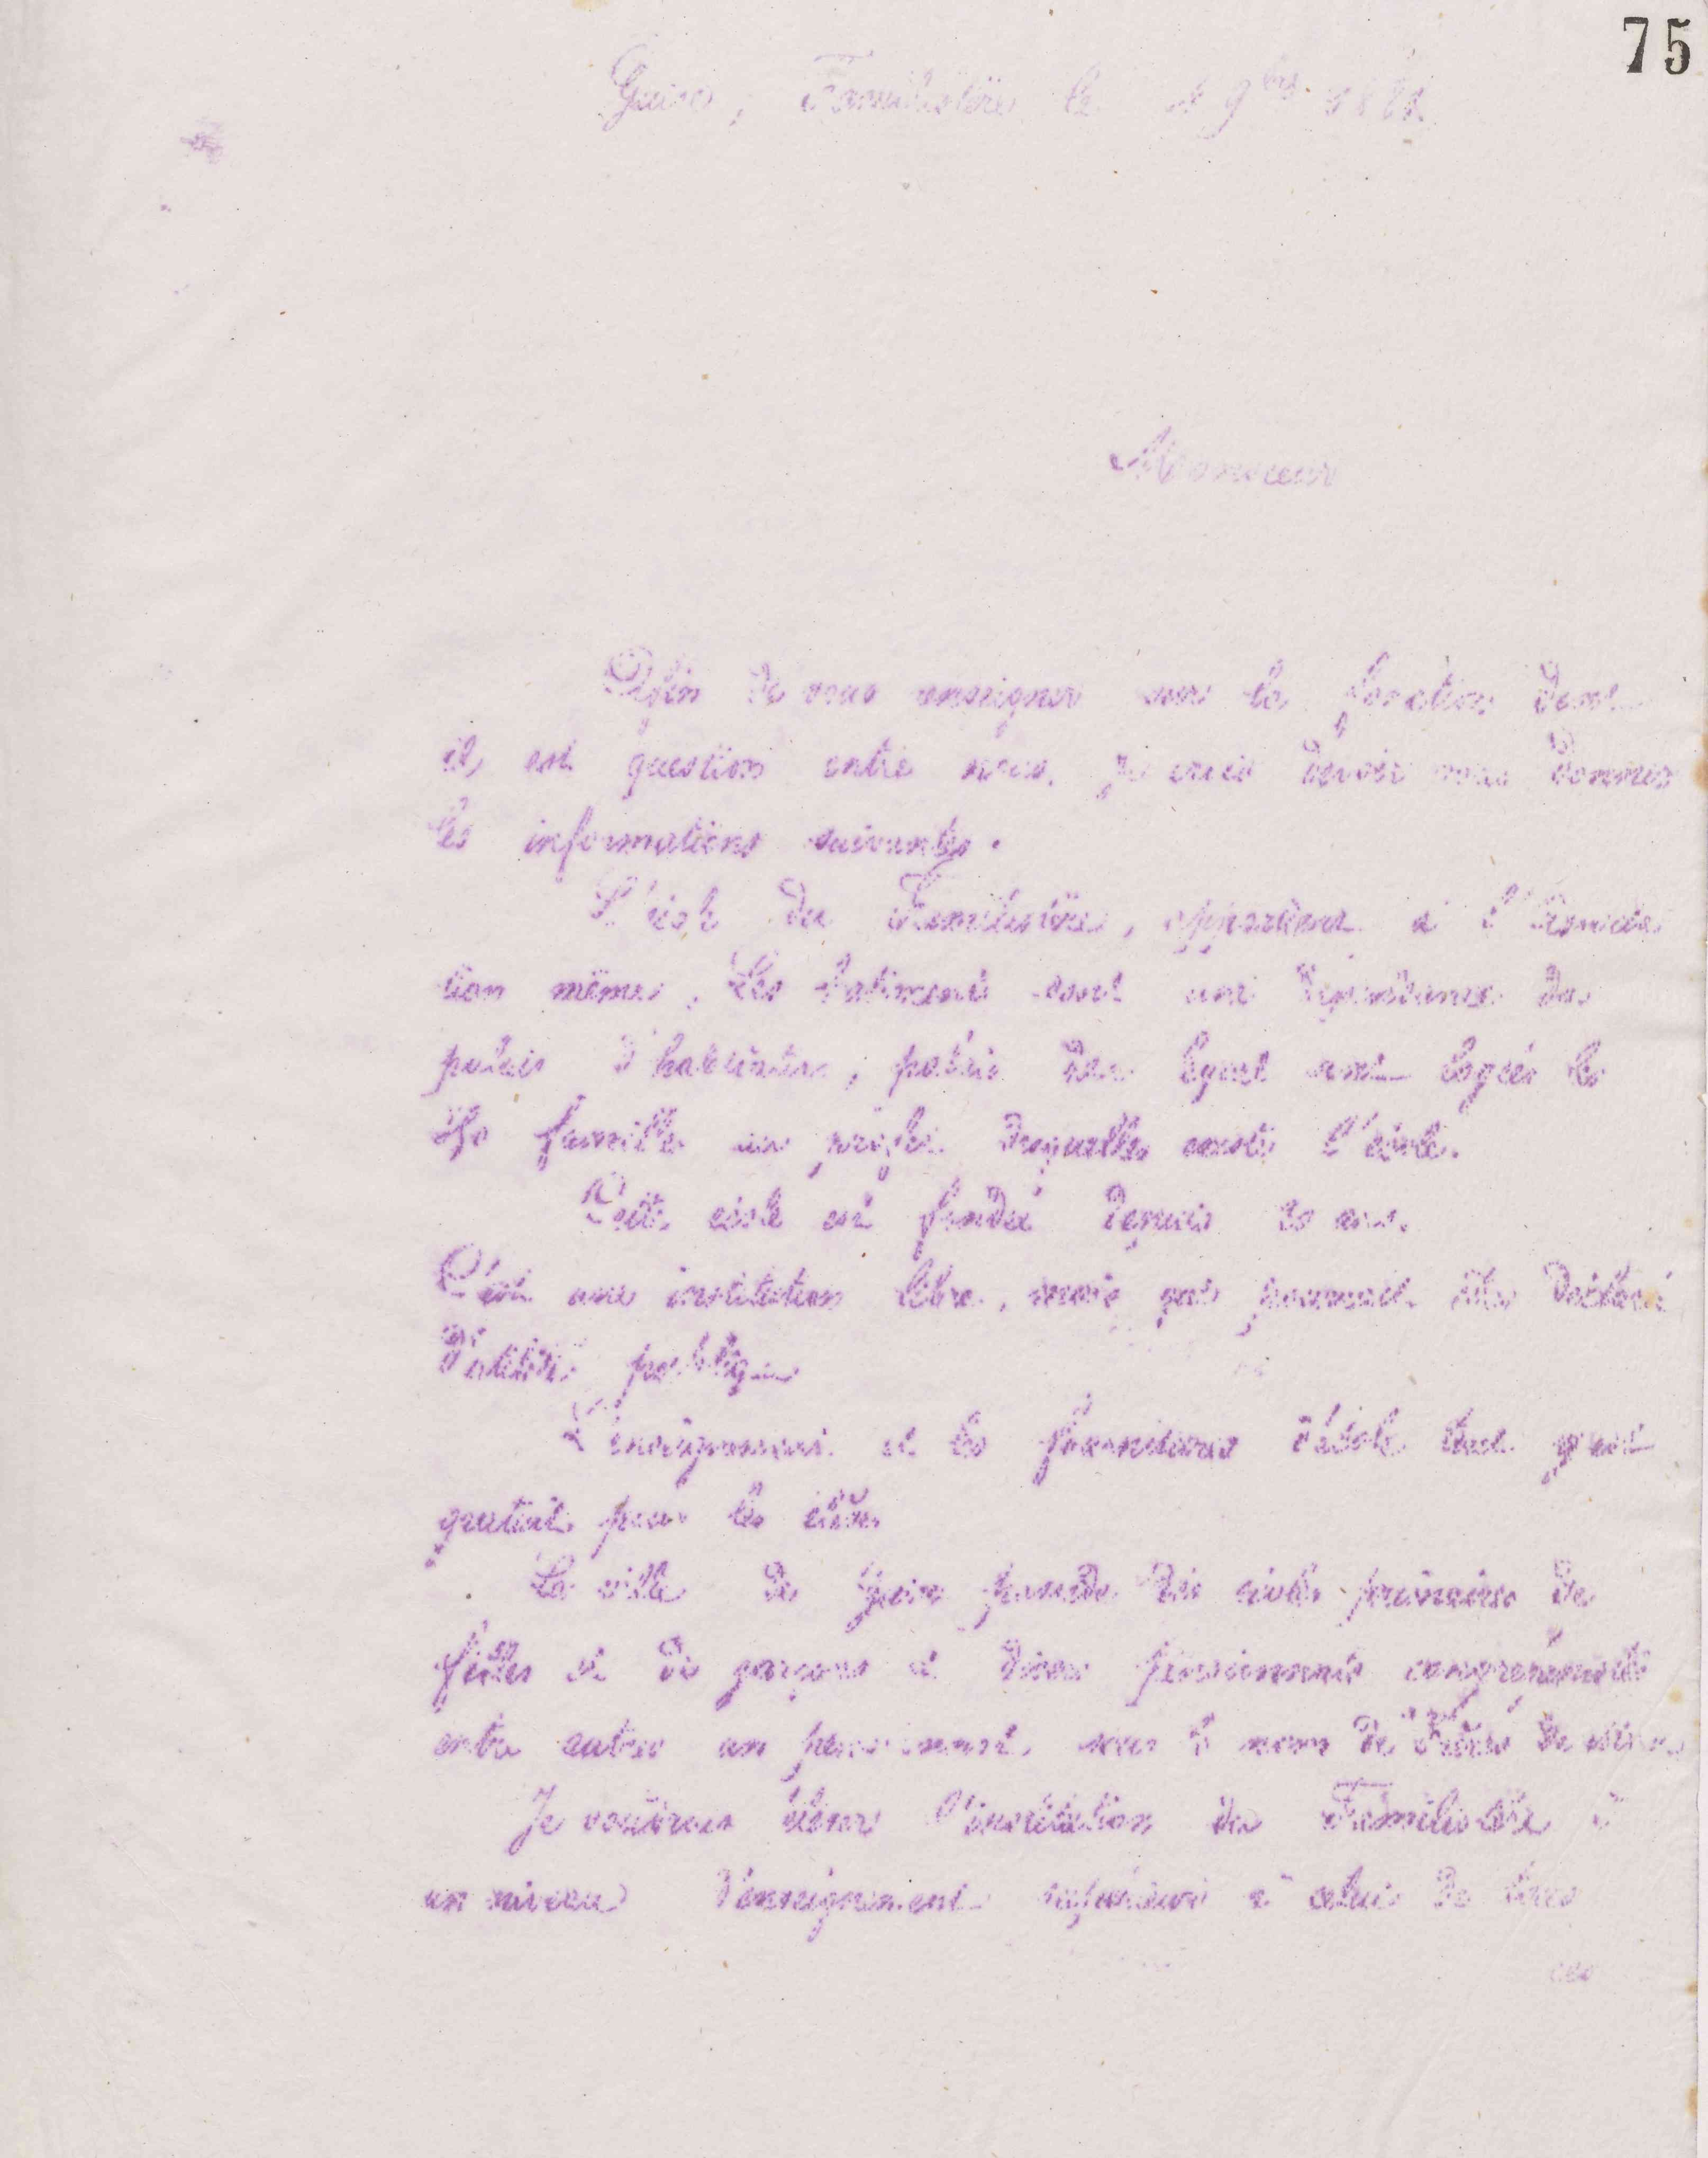 75
Guise, Familistère le 9bre
Monsieur
Afin de vous renseigner sur la fonction dont
il est question entre nous, je crois devoir vous donner
les informations suivantes.
L'école du Familistère, appartient à l'Associa
tion même. Les batiments sont une dépendance du
palais d'habitation, palais dans lequel sont logées les
familles au profit desquelles existe l'école.
Cette école est fondée depuis 20 ans.
C'est une institution libre, mais qui pourrait être déclarée
d'utilité publique
L'enseignement et les fournitures d'école tout y est
gratuit pour les élèves
La ville de Guise possède des écoles primaires de
filles et de garçons et divers pensionnats comprenant
entre autres un pensionnat sous le nom de
Je voudrais élever l'institution du Familistère à
un niveau d'enseignement supérieur à celui de toutes
ces